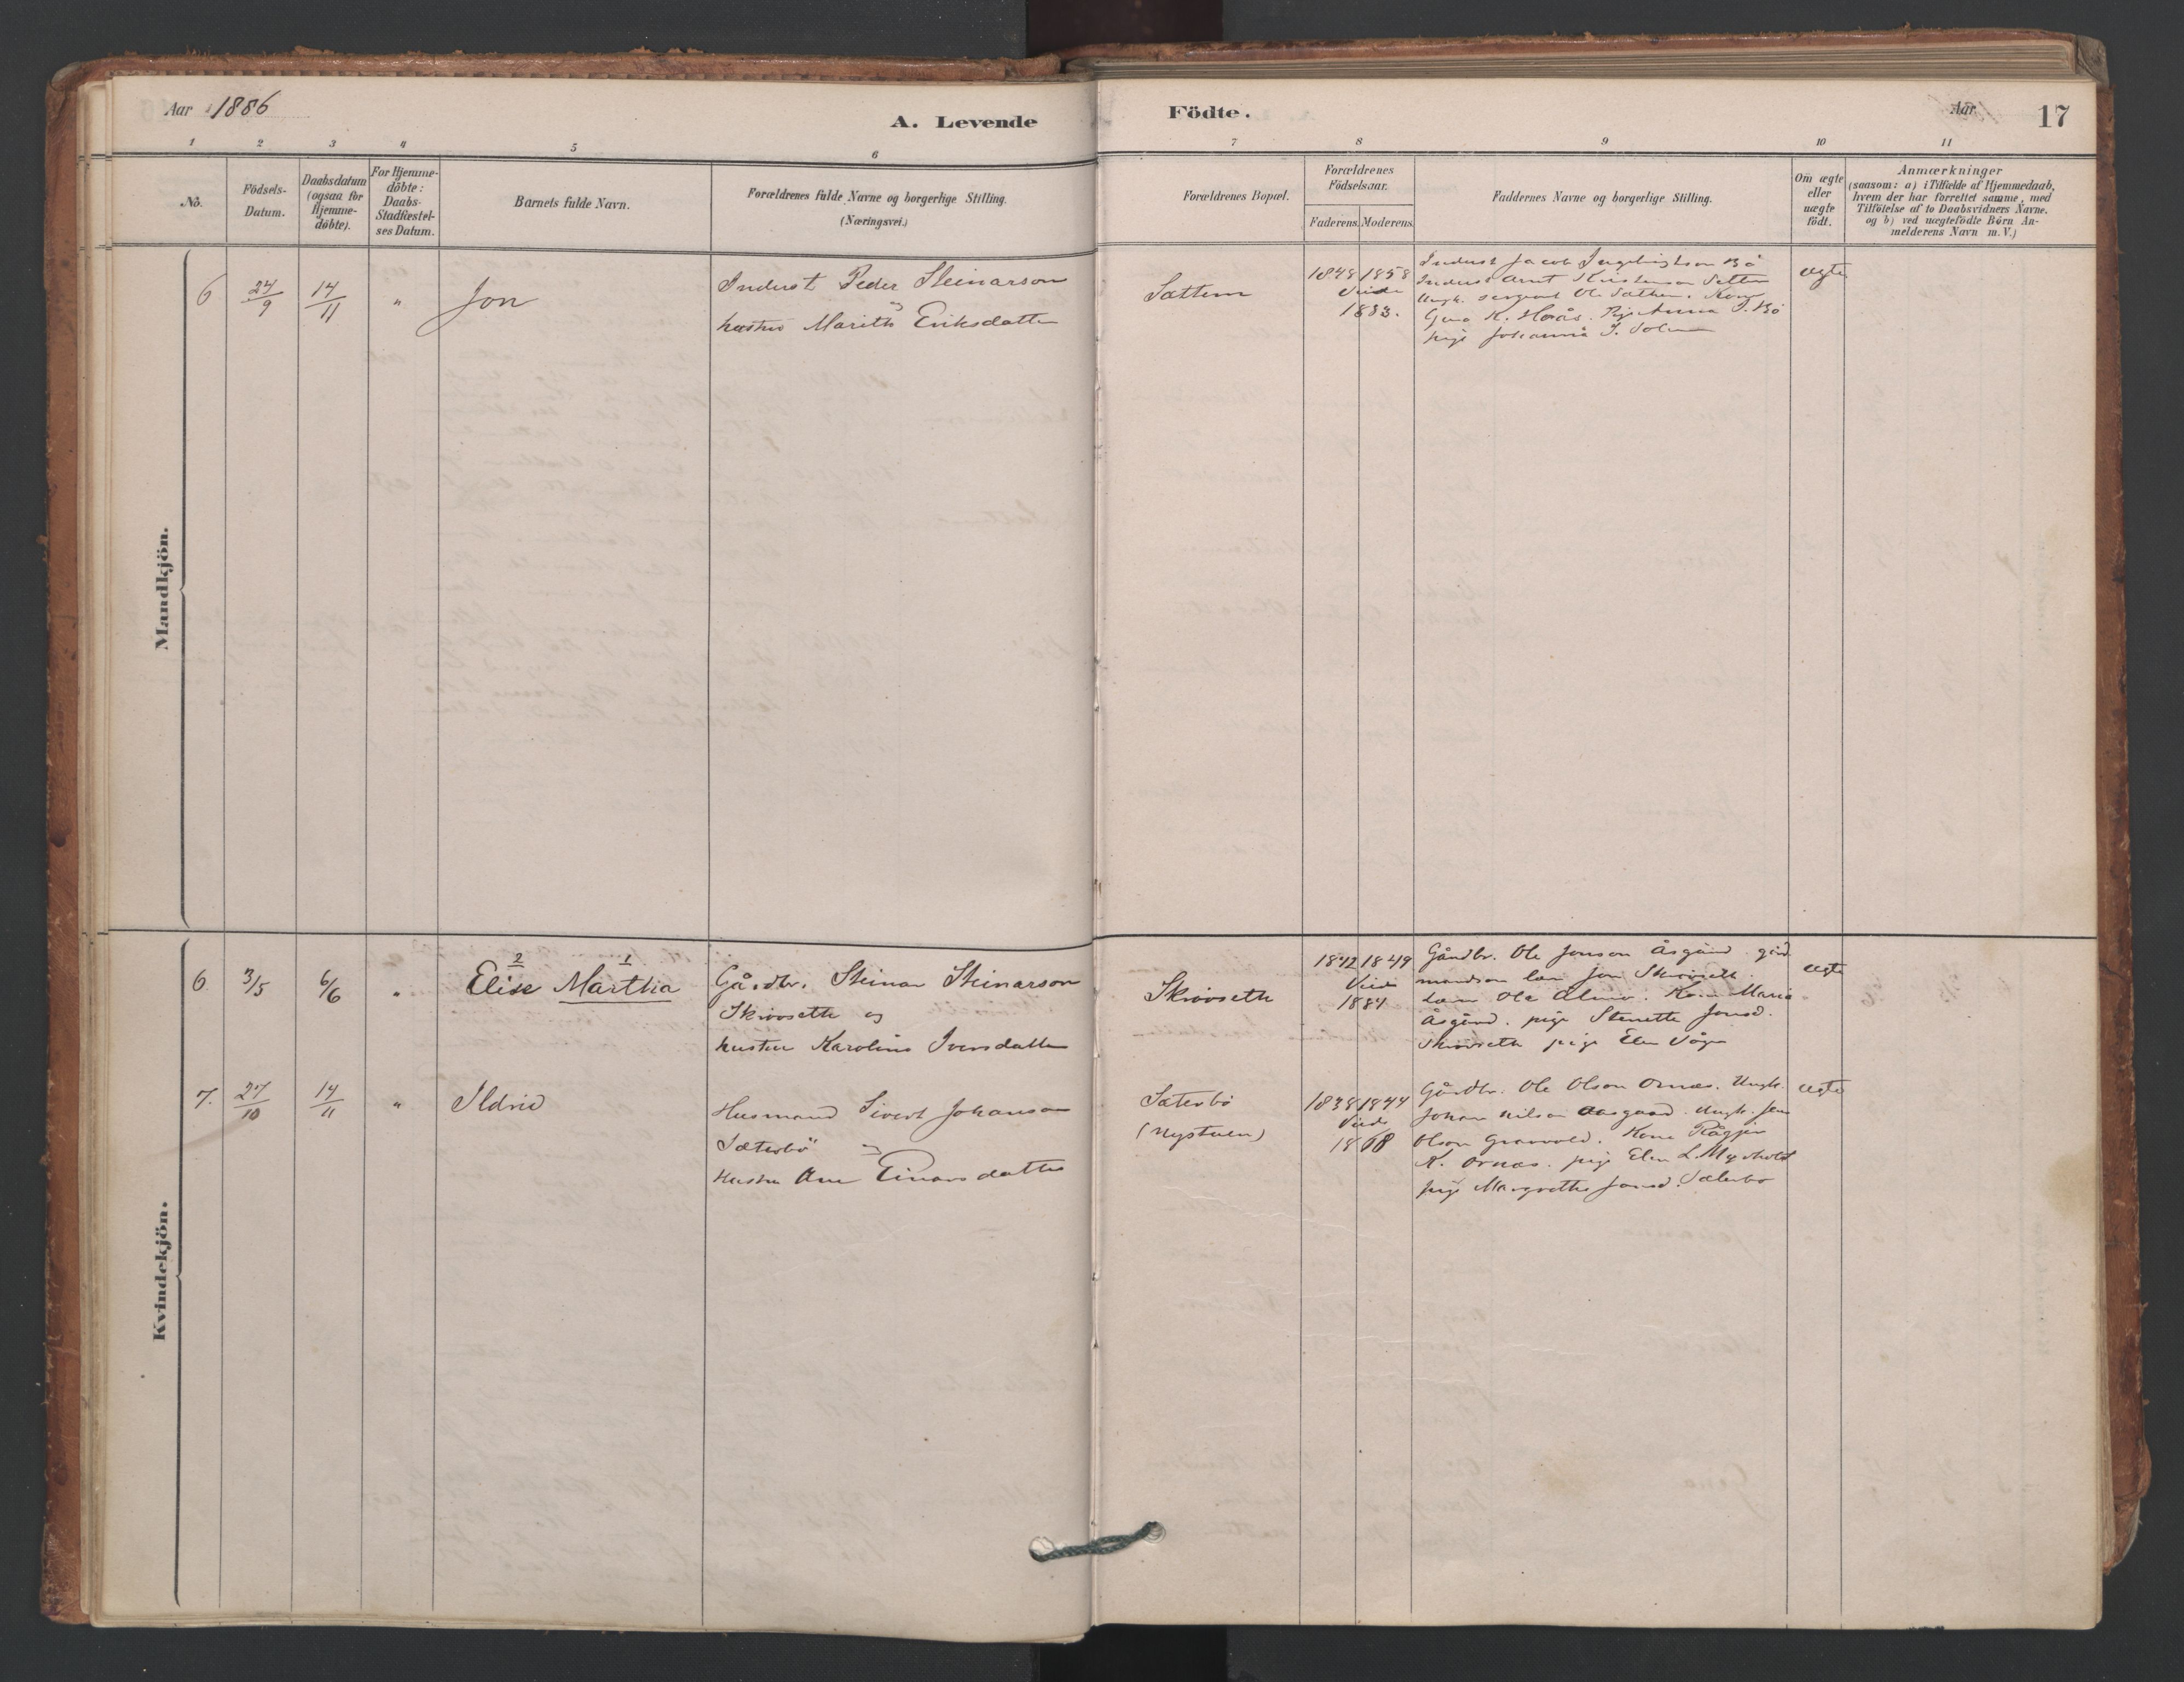 Aar 1886
A. Levende
Födte.
Aar
17
1 2 3 4 5 6 7 8 9 10 11
No.
Födsels-Datum.
Daabsdatum (ogsaa for Hjemme-döbte).
For Hjemme-döbte: Daabs-Stadfæstel-ses Datum.
Barnets fulde Navn.
Forældrenes fulde Navne og borgerlige Stilling. (Næringsvei.)
Forældrenes Bopæl.
Forældrenes Födselsaar.
Faderens. Moderens.
Faddernes Navne og borgerlige Stilling.
Om ægte eller uægte födt.
Anmærkninger
(saasom: a) i Tilfælde af Hjemmedaab,
hvem der har forrettet samme, med
Tilföielse af to Daabsvidners Navne.
og b) ved uægtefödte Börn An-
melderens Navn m. V.)
Mandkjön.
6 24/9 14/11 " Jon
Inderst Peder Steinarson
og
hustru Marith Eriksdatter
Sattem
1848 1858
Viede
1883.
Inderst Jacob Ingebrigtson Bö
Inderst Arnt
Ungk. sergeant Ole Sattem. Kone
K. Haås. Pige Anna
pige Johanna J.
ægte
Kvindekjön.
6 3/5 6/6 "
2 1
Elise Martha
Gårdbr. Steinar Steinarson
Skivseth og
hustru Karoline Iversdatter
Skivseth
1842 1849
Viede
1884
Gårdbr. Ole Jonson Åsgård. gård
mandson Jon Skivseth.
Ole Kone Maria
Åsgård. pige Stenette Jonsd.
Skivseth pige Elen
ægte
7. 27/10 14/11 " Ildrid
Husmand Sivert Johanson
Sæterbö og
Hustru Ane Einarsdatter
Sæterbö
(Nystuen)
1838 1844
Viede
1868
Gårdbr. Ole Olson Ornæs. Ungk.
Johan Nilson Aasgaard. Ungk. Jens
Olson Granvold. Kone
K. Ornæs. pige Elen L. Myrhold
pige Margrethe Jonsd. Sæterbö
ægte